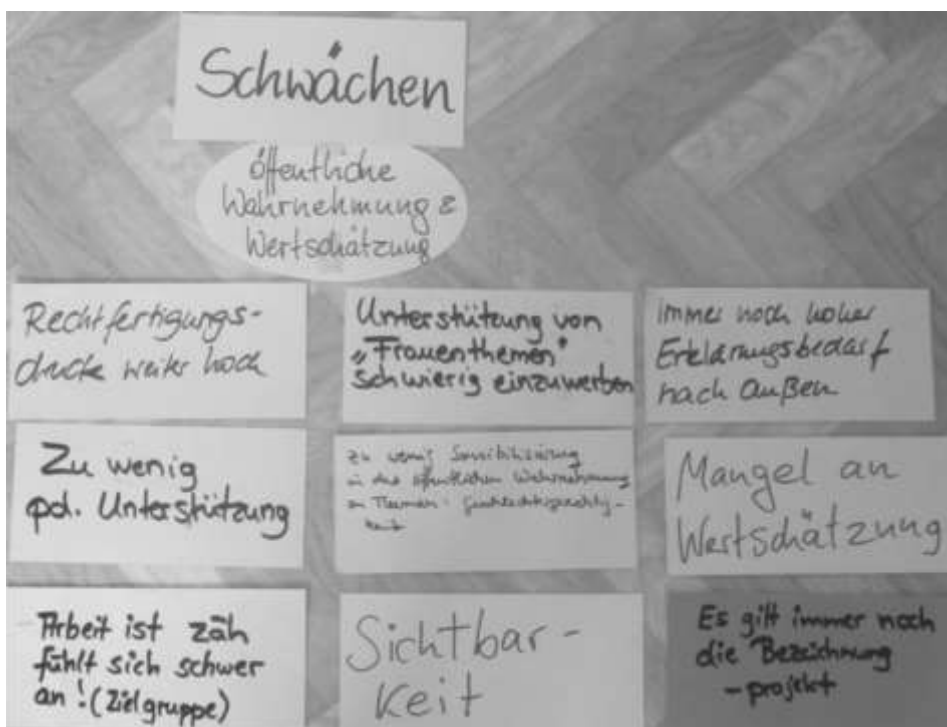 Schwächen
öffentliche
Wahrnehmung &
Wertschätzung
Rechtfertigungs-
drucke weiter hoch
Unterstützung von
„Frauenthemen"
schwierig einzuwerben
immer noch hoher
Erklärungsbedarf
nach außen
Zu wenig
pol. Unterstützung
zu wenig Sensibilisierung
in der öffentlichen Wahrnehmung
zu Themen: Geschlechtergerechtig-
keit
Mangel an
Wertschätzung
Arbeit ist zäh
fühlt sich schwer
an! (Zielgruppe)
Sichtbar-
keit
Es gilt immer noch
die Bezeichnung
- projekt